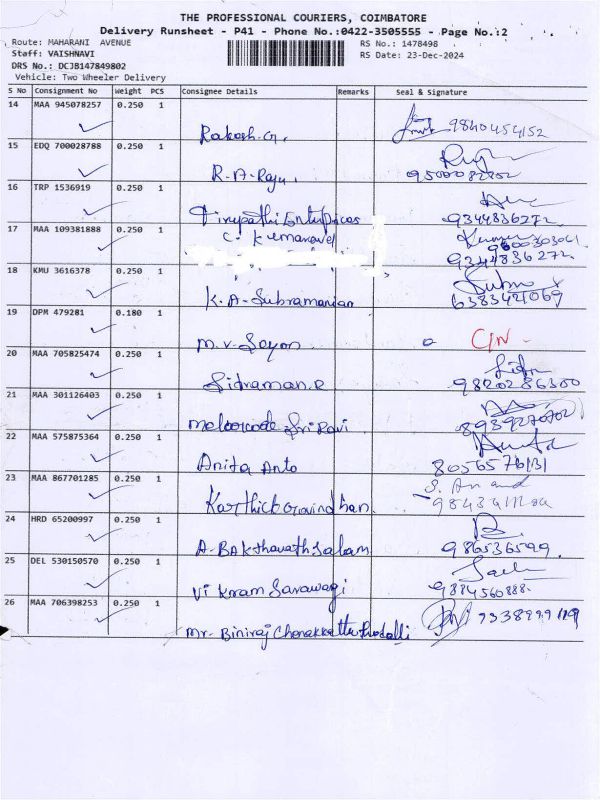 THE PROFESSIONAL COURIERS, COIMBATORE
Delivery Runsheet - P41 - Phone No.:0422-3505555 - Page No.:2
Route: MAHARANI AVENUE
Staff: VAISHNAVI
DRS No.: DCJB147849802
Vehicle: Two Wheeler Delivery
RS No.: 1478498
RS Date: 23-Dec-2024
S No Consignment No Weight PCS Consignee Details Remarks Seal & Signature
14 MAA 945078257 0.250 1
Rakesh.G. 9840454152
15 EDQ 700028788 0.250 1
R.A.Raju.
16 TRP 1536919 0.250 1
Tirupathi Enterprices 9344836272
17 MAA 109381888 0.250 1
C. Kumaravel
9344836272
18 KMU 3616378 0.250 1
K.A-Subramanian 6383421069
19 DPM 479281 0.180 1
M.V. C/N
20 MAA 705825474 0.250 1
9820286300
21 MAA 301126403 0.250 1
Sri Ravi 8939270702
22 MAA 575875364 0.250 1
Anita Anto 8056576131
23 MAA 867701285 0.250 1
Karthick Govindhan S. Anand
24 HRD 65200997 0.250 1
A. Bakthavathsalam 986536599
25 DEL 530150570 0.250 1
Vikram Sarawagi 9884560888
26 MAA 706398253 0.250 1
Mr. Biniraj